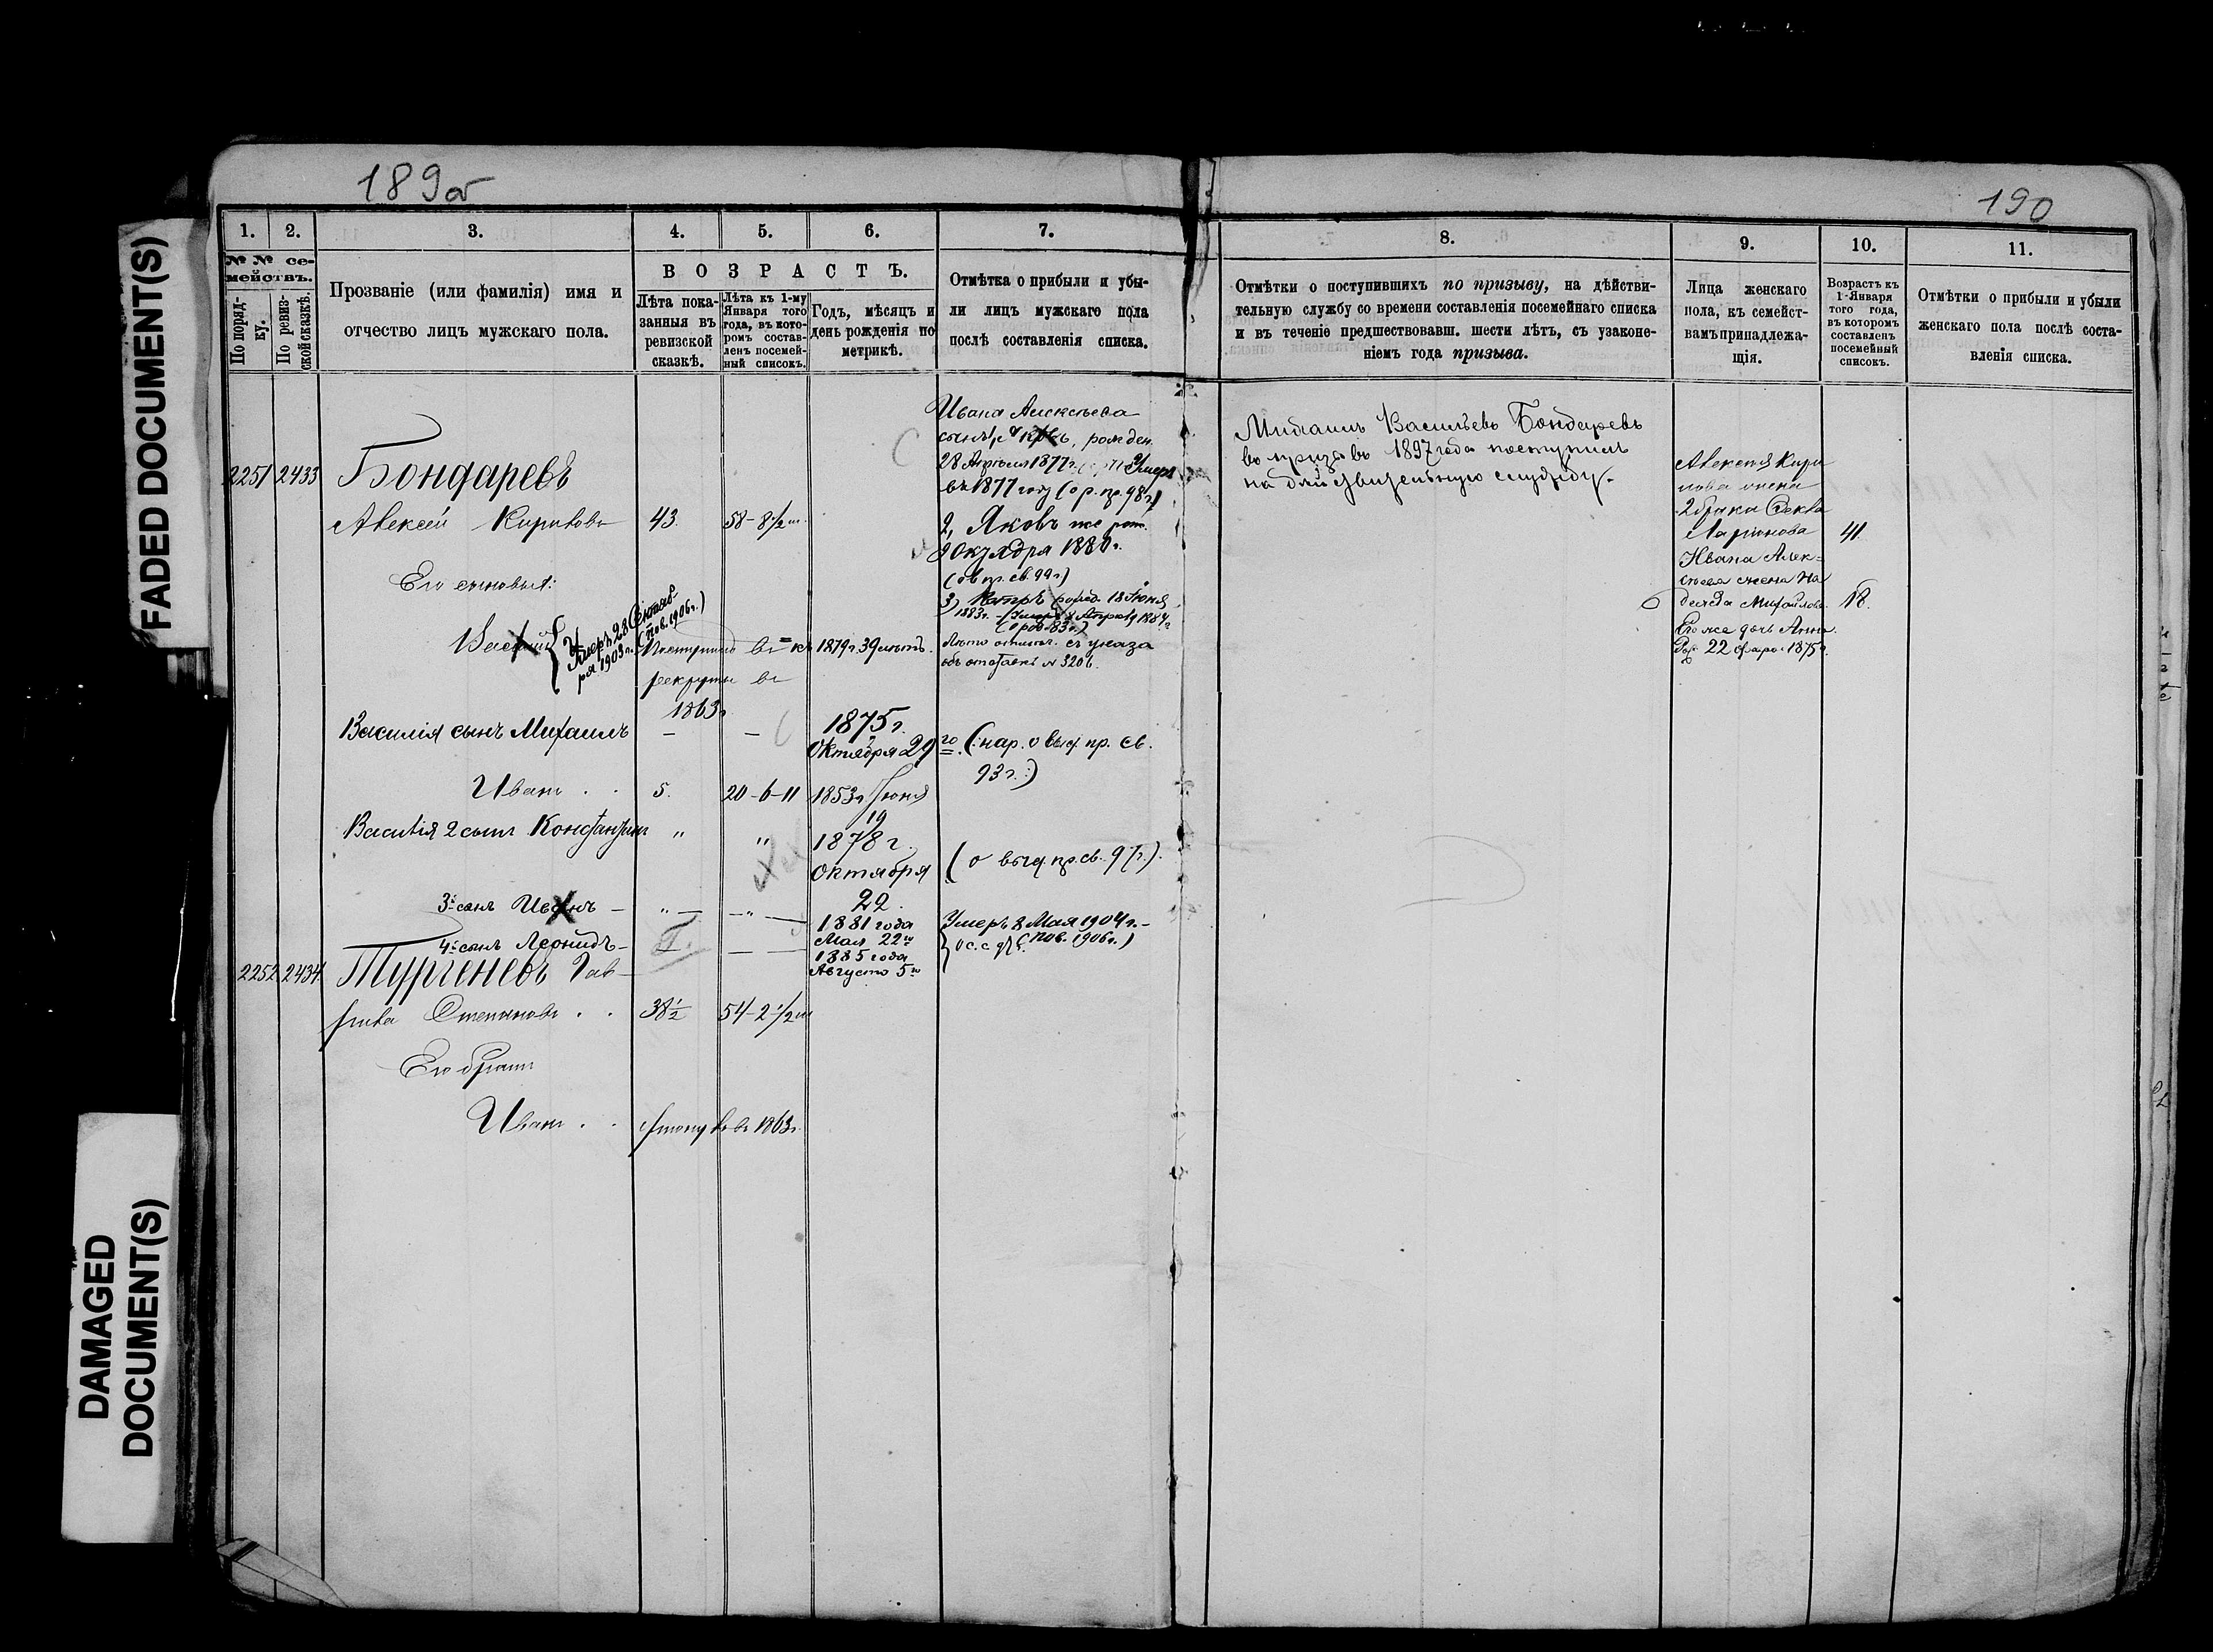 FADED DOCUMENT(S)
DAMAGED
DOCUMENT(S)
189об
1.
2.
3.
4.
5.
6.
7.
№ № се-
мействъ.
По поряд-
ку.
По ревиз-
ской сказкѣ.
Прозваніе (или фамилія) имя и
отчество лицъ мужскаго пола.
ВОЗРАСТЪ.
Лѣта пока-
занныя въ
ревизской
сказкѣ.
Лѣта къ 1-му
Января того
года, въ кото-
ромъ состав-
ленъ посемей-
ный списокъ.
Годъ, мѣсяцъ и
день рожденія по
метрикѣ.
Отмѣтка о прибыли и убы-
ли лицъ мужскаго пола
послѣ составленія списка.
2251 2433 Бондаревъ
Алексей Кириловъ 43. 58-8½ м.
Его сыновья:
Василій
Умеръ 28 Сентяб-
ря 1903 г. (пов. 1906 г.)
Поступилъ въ
рекруты въ
1863 г.
1879 г. 39 лѣтъ.
Василія сынъ Михаилъ — —
1875 г.
Октября 29 го (нар. о выд. пр. св.
93 г.)
Иванъ . . 5. 20-6-11 1853 г. Іюня
19
Василія 2 сынъ Константинъ " "
1878 г.
Октября
22.
(о выд. пр. св. 97 г.).
3й сынъ Иванъ —
1881 года
Мая 22го
Умеръ 8 Мая 1904 г. —
(пов. 1906 г.)
4й сынъ Леонидъ —
1885 года
Августа 5го
2252 2434 Тургеневъ Гав-
рила Степановъ . . 38½ 54-2½ м
Его братъ
Иванъ . . 1863 г.
Ивана Алексѣева
сынъ рожден.
28 Апрѣля 1877 г. Умеръ
въ 1877 году
2, Яковъ же рож.
9 Октября 1880 г.
3) Петръ рожд. 18 Іюня
1883 г.
съ указа
объ отставкѣ № 3206.
190
8.
9.
10.
11.
Отмѣтки о поступившихъ по призыву, на дѣйстви-
тельную службу со времени составленія посемейнаго списка
и въ теченіе предшествовавш. шести лѣтъ, съ узаконе-
ніемъ года призыва.
Лица женскаго
пола, къ семейст-
вамъ принадлежа-
щія.
Возрастъ къ
1-Января
того года,
въ которомъ
составленъ
посемейный
списокъ.
Отмѣтки о прибыли и убыли
женскаго пола послѣ соста-
вленія списка.
Михаилъ Васильевъ Бондаревъ
въ призывъ 1897 года поступилъ
на дѣйствительную службу.
Алексея Кири
лова жена
2 брака Фекла
Ларіонова 41.
Ивана Алек-
сѣева жена На
дежда Михайлова 18.
Его же дочь Анна.
22 1875 г.